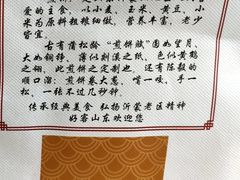 爱的主食，以小麦、玉米、黄豆、小
米为原料粗粮细做，营养丰富，老少
皆宜。
古有蒲松龄“煎饼赋”圆如望月，
大如铜钲，薄似剡溪之纸，色似黄鹤
之翎，此煎饼之定制也，还有陈毅的
顺口溜：煎饼卷大葱，嘴一咬，手一
松，一张不过几秒钟。
传承经典美食 弘扬沂蒙老区精神
好客山东欢迎您